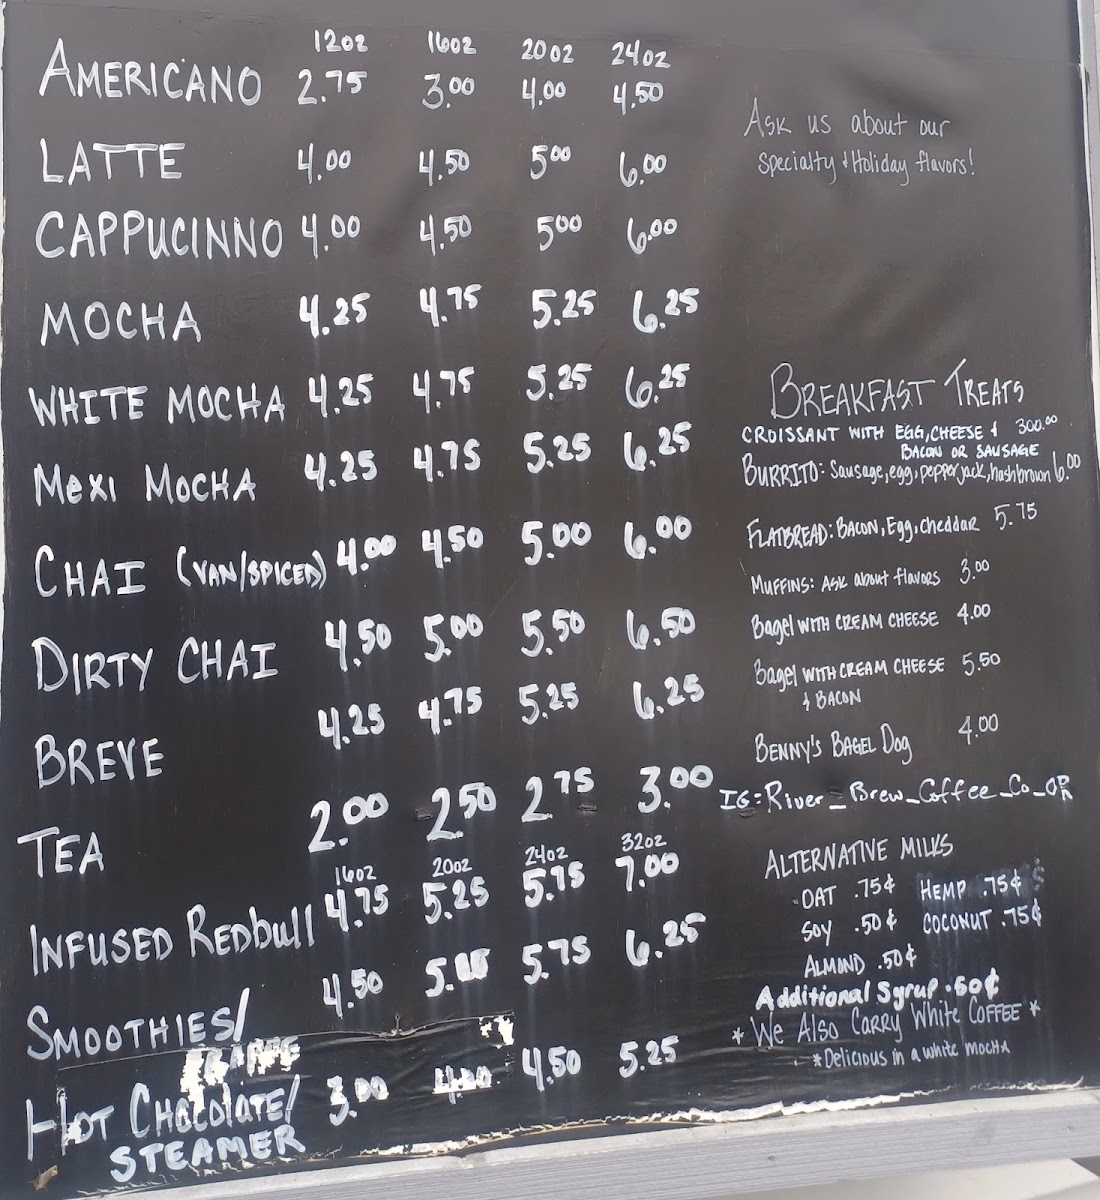 12oz 16oz 20oz 24oz
AMERICANO 2.75 3.00 4.00 4.50
LATTE 4.00 4.50 5.00 6.00
CAPPUCINNO 4.00 4.50 5.00 6.00
MOCHA 4.25 4.75 5.25 6.25
WHITE MOCHA 4.25 4.75 5.25 6.25
MEXI MOCHA 4.25 4.75 5.25 6.25
CHAI (VAN/SPICED) 4.00 4.50 5.00 6.00
DIRTY CHAI 4.50 5.00 5.50 6.50
BREVE 4.25 4.75 5.25 6.25
TEA 2.00 2.50 2.75 3.00
16oz 20oz 24oz 32oz
INFUSED REDBull 4.75 5.25 5.75 7.00
SMOOTHIES/ 4.50 5.75 6.25
HOT CHOCOLATE/ 3.00 4.00 4.50 5.25
STEAMER
Ask us about our
specialty & Holiday flavors!
BREAKFAST TREATS
CROISSANT WITH EGG, CHEESE & 300.00
BACON OR SAUSAGE
BURRITO: Sausage, egg, pepperjack, hashbrown 6.00
FLATBREAD: BACON, Egg, cheddar 5.75
MUFFINS: Ask about flavors 3.00
Bagel WITH CREAM CHEESE 4.00
Bagel WITH CREAM CHEESE 5.50
& BACON
BENNY'S BAGEL Dog 4.00
IG: River_Brew_Coffee_Co_OR
ALTERNATIVE MILKS
OAT .75¢ HEMP .75¢
SOY .50¢ COCONUT .75¢
ALMOND .50¢
Additional Syrup .50¢
*We Also Carry White COFFEE*
*Delicious in a white mocha